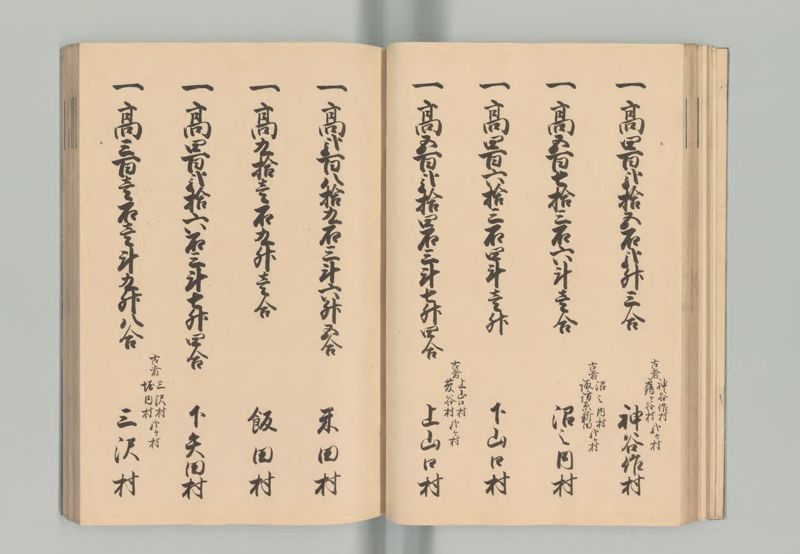 一高四百弐拾五石弐升三合
古者 神谷作村
弐ケ村
神谷作村
一高五百七拾三石六斗壱合
古者 沼之内村
諏訪原新田
弐ケ村
沼之内村
一高四百六拾三石四斗壱升
下山口村
一高五百弐拾四石三斗七升四合
古者 上山口村
弐ケ村
上山口村
一高弐百八拾九石三斗六升五合
米田村
一高九拾壱石九升壱合
飯田村
一高四百弐拾六石三斗七升四合
下矢田村
一高三百壱石壱斗九升八合
古者 三沢村
堀内村
弐ケ村
三沢村